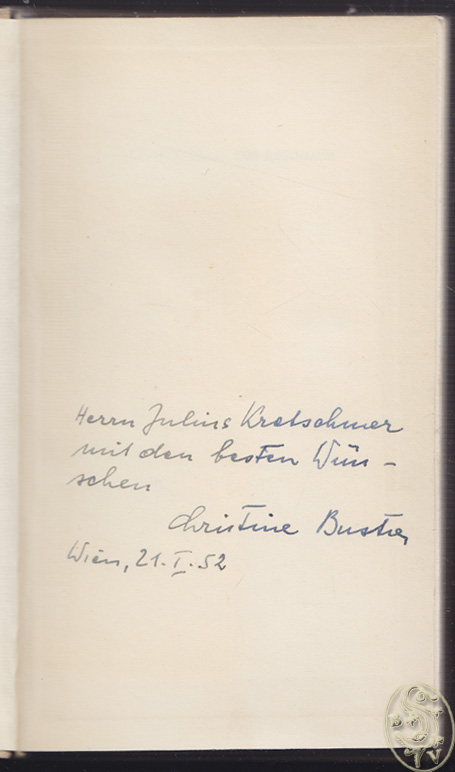 Herrn Julius Kretschmer
mit den besten Wün-
schen
Christine Busta
Wien, 21. I. 52